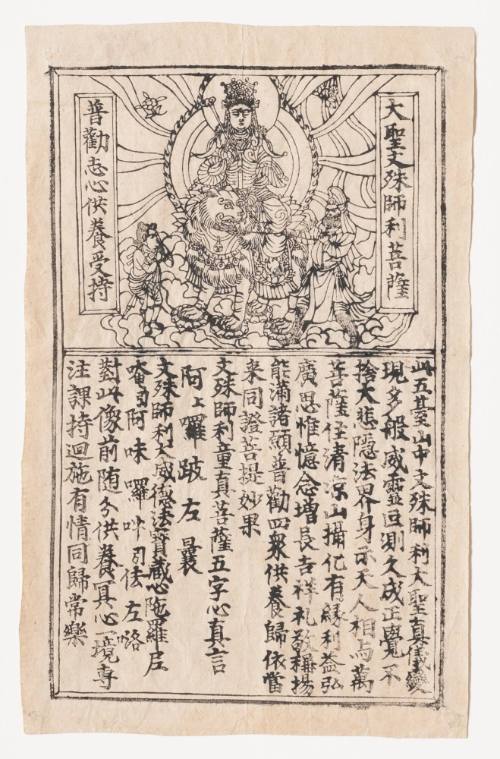 大聖文殊師利菩薩
普勸志心供養受持
此五臺山中文殊師利大聖真儀變
現多般威靈叵測久成正覺不
捨大悲隱法界身示天人相与萬
菩薩住清涼山攝化有緣利益弘
廣思惟憶念增長吉祥礼敬稱揚
能滿諸願普勸四衆供養歸依當
来同證菩提妙果
文殊師利童真菩薩五字心真言
阿上囉跛左曩
文殊師利大威德法寶藏心陀羅尼
唵引阿味囉吽引佉左咯
對此像前随分供養冥心一境專
注課持迴施有情同歸常樂